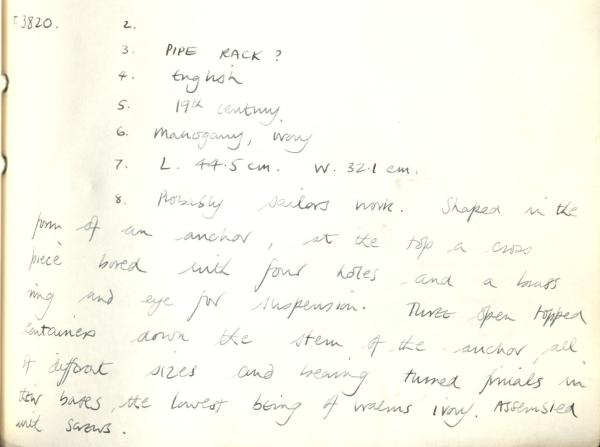 T3820. 2.
3. PIPE RACK?
4. English
5. 19th century.
6. Mahogany, ivory
7. L. 44.5 cm. W. 32.1 cm.
8. Probably sailors work. Shaped in the
form of an anchor, at the top a cross
piece bored with four holes and a brass
ring and eye for suspension. Three open topped
containers down the stem of the anchor, all
of different sizes and bearing turned finials in
their bases, the lowest being of walrus ivory. Assembled
with screws.